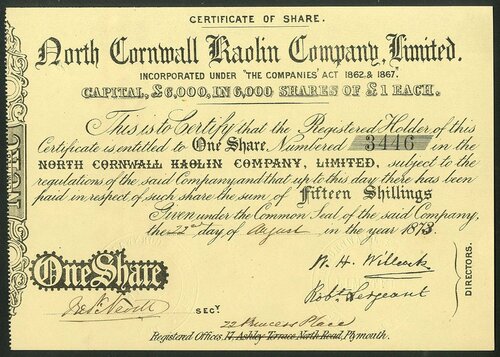 CERTIFICATE OF SHARE.
North Cornwall Kaolin Company, Limited.
INCORPORATED UNDER "THE COMPANIES' ACT 1862 & 1867.
CAPITAL, £6,000, IN 6,000 SHARES OF £1 EACH.
This is to Certify that the Registered Holder of this
Certificate is entitled to One Share, Numbered 3446 in the
NORTH CORNWALL KAOLIN COMPANY, LIMITED, subject to the
regulations of the said Company and that up to this day there has been
paid in respect of such share the sum of Fifteen Shillings
Given under the Common Seal of the said Company,
the 22nd day of August in the year 1873.
One Share
SECY.
DIRECTORS.
Robt Sergeant
22 Princess Place
Registered Offices, 17, Ashley Terrace North Road, Plymouth.